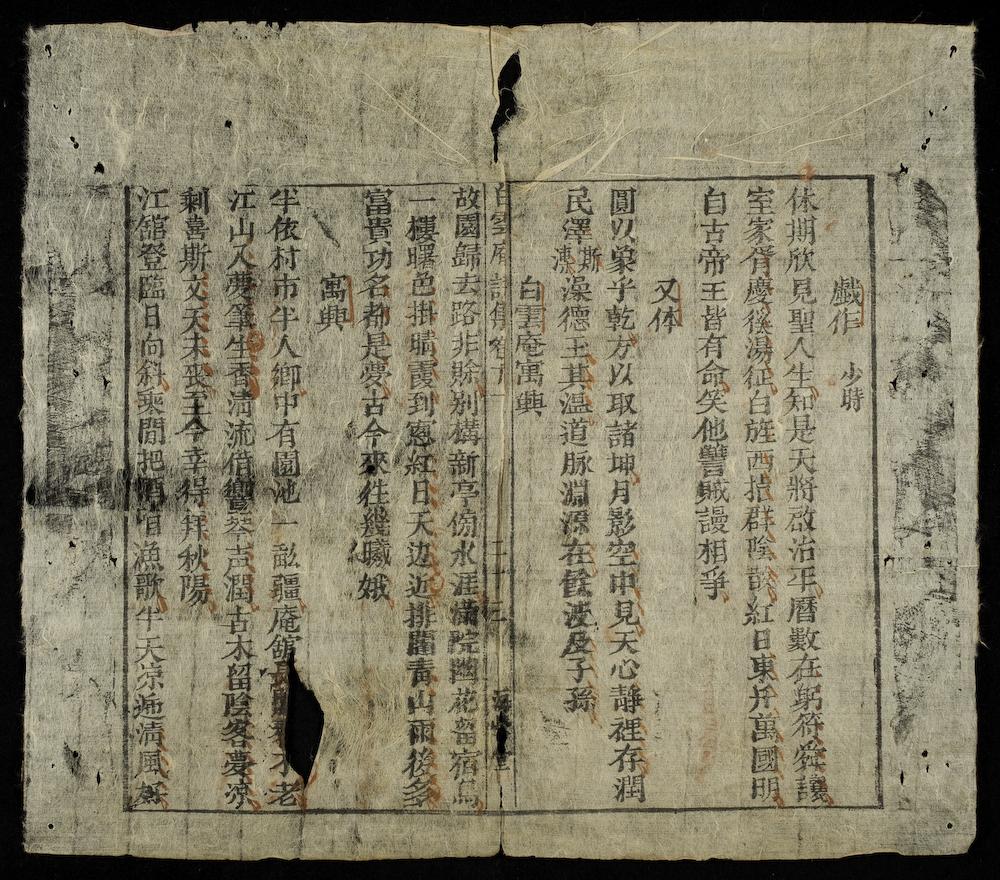 戲作 少時
休期欣見聖人生知是天將啟治平曆數在躬符舜讓
室家胥慶徯湯征白旄西指群陰散紅日東升萬國明
自古帝王皆有命笑他讐賊謾相爭
又体
圓以象乎乾方以取諸坤月影空中見天心靜裡存潤
民澤斯溱澡德玉其温道脉淵源在餘波及子孫
白雲庵寓興
白雲庵詩集
故園歸去路非賒別構新亭俯水涯滿院幽花留宿鳥
一樓曙色掛晴霞到窓紅日天边近排闥青山雨後多
富貴功名都是夢古今來往幾曦娥
寓興
半依村市半人鄉中有園池一畝疆庵舘長不老
江山入夢筆生香清流借響琴声潤古木留陰客夢凉
剩喜斯文天未喪至今幸得拜秋陽
江舘登臨日向斜乘閒把酒漁歌半天凉逓清風